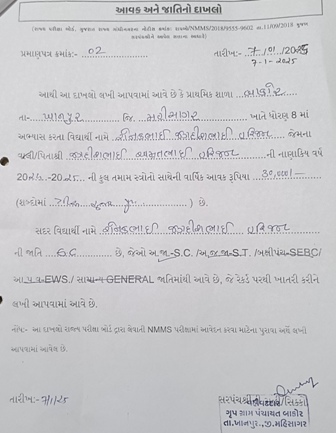 આવક અને જાતિનો દાખલો
(રાજ્ય પરીક્ષા બોર્ડ, ગુજરાત રાજ્ય ગાંધીનગરના નોટીસ ક્રમાંક: રાપબો/NMMS/2018/9555-9602 તા.11/09/2018 મુજબ
સરપંચશ્રીની આવક દાખલા અંગેની)
પ્રમાણપત્ર ક્રમાંક:- 02 તારીખ:- 7/01/2025
7-1-2025
આથી આ દાખલો લખી આપવામાં આવે છે કે પ્રાથમિક શાળા બાકોર
તા- ખાનપુર જિ. મહીસાગર ખાતે ધોરણ 8 માં
અભ્યાસ કરતા વિદ્યાર્થી નામે જગદીશભાઈ હરિજન જેમના
વાલી/પિતાશ્રી જગદીશભાઈ હરિજન ની નાણાકિય વર્ષ
2024-2025 ની કુલ તમામ સ્ત્રોતો સાથેની વાર્ષિક આવક રૂપિયા 30,000/-
(શબ્દોમાં ત્રીસ હજાર પુરા) છે.
સદર વિદ્યાર્થી નામે જગદીશભાઈ હરિજન
ની જાતિ S.C છે, જેઓ અ.જા.-S.C. /અ.જ.જા-S.T. /બક્ષીપંચ-SEBC/
આ.પ.વ-EWS./ સામાન્ય GENERAL જાતિમાંથી આવે છે, જે રેકર્ડ પરથી ખાતરી કરીને
લખી આપવામાં આવે છે.
નોંધ:- આ દાખલો રાજ્ય પરીક્ષા બોર્ડ દ્વારા લેવાની NMMS પરીક્ષામાં આવેદન કરવા માટેના પુરાવા અર્થે લખી
આપવામાં આવેલ છે.
તારીખ:- 7/1/25
સરપંચશ્રીની સહી/સિક્કો
ગ્રુપ ગ્રામ પંચાયત બાકોર
તા.ખાનપુર,જી.મહિસાગર